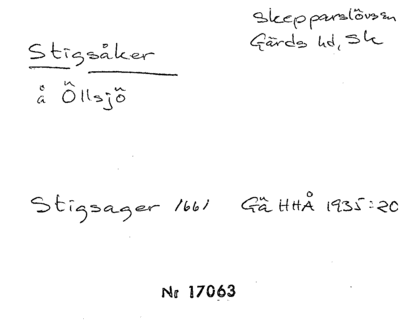 Skepparslövs sn
Gärds hd, Sk
Stigsåker
å Öllsjö
Stigsager 1661 Gä HHÅ 1935:20
Nr 17063